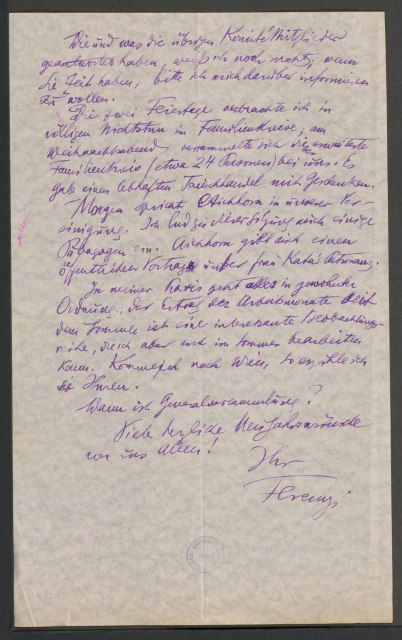 Die und was die übrigen Komité Mitglieder
geantwortet haben, weiß ich noch nicht, wenn
Sie Zeit haben, bitte ich mich darüber informieren
zu wollen.
Die zwei Feiertage verbrachte ich in
völligem Nichtstun im Familienkreise; am
Weihnachtsabend versammelte sich die erweiterte
Familienkreis (etwa 24 Personen) bei uns. Es
gab einen lebhaften Tauschhandel mit Geschenken.
Morgen spricht Aichhorn in unserer Ver-
einigung. Ich lud zu dieser Sitzung auch einige
Pädagogen ein. Aichhorn gibt auch einen
öffentlichen Vortrag in der Frau
In meiner Praxis geht alles in gewohnter
Ordnung, der Ertrag der Arbeitsmonate seit
dem Sommer ist eine interessante Beobachtungs-
reihe, die ich aber erst im Sommer bearbeiten
kann. Komme ich nach Wien, so erzähle ich
es Ihnen.
Wann ist Generalversammlung?
Viele herzliche Neujahrswünsche
von uns Allen!
Ihr
Ferenczi